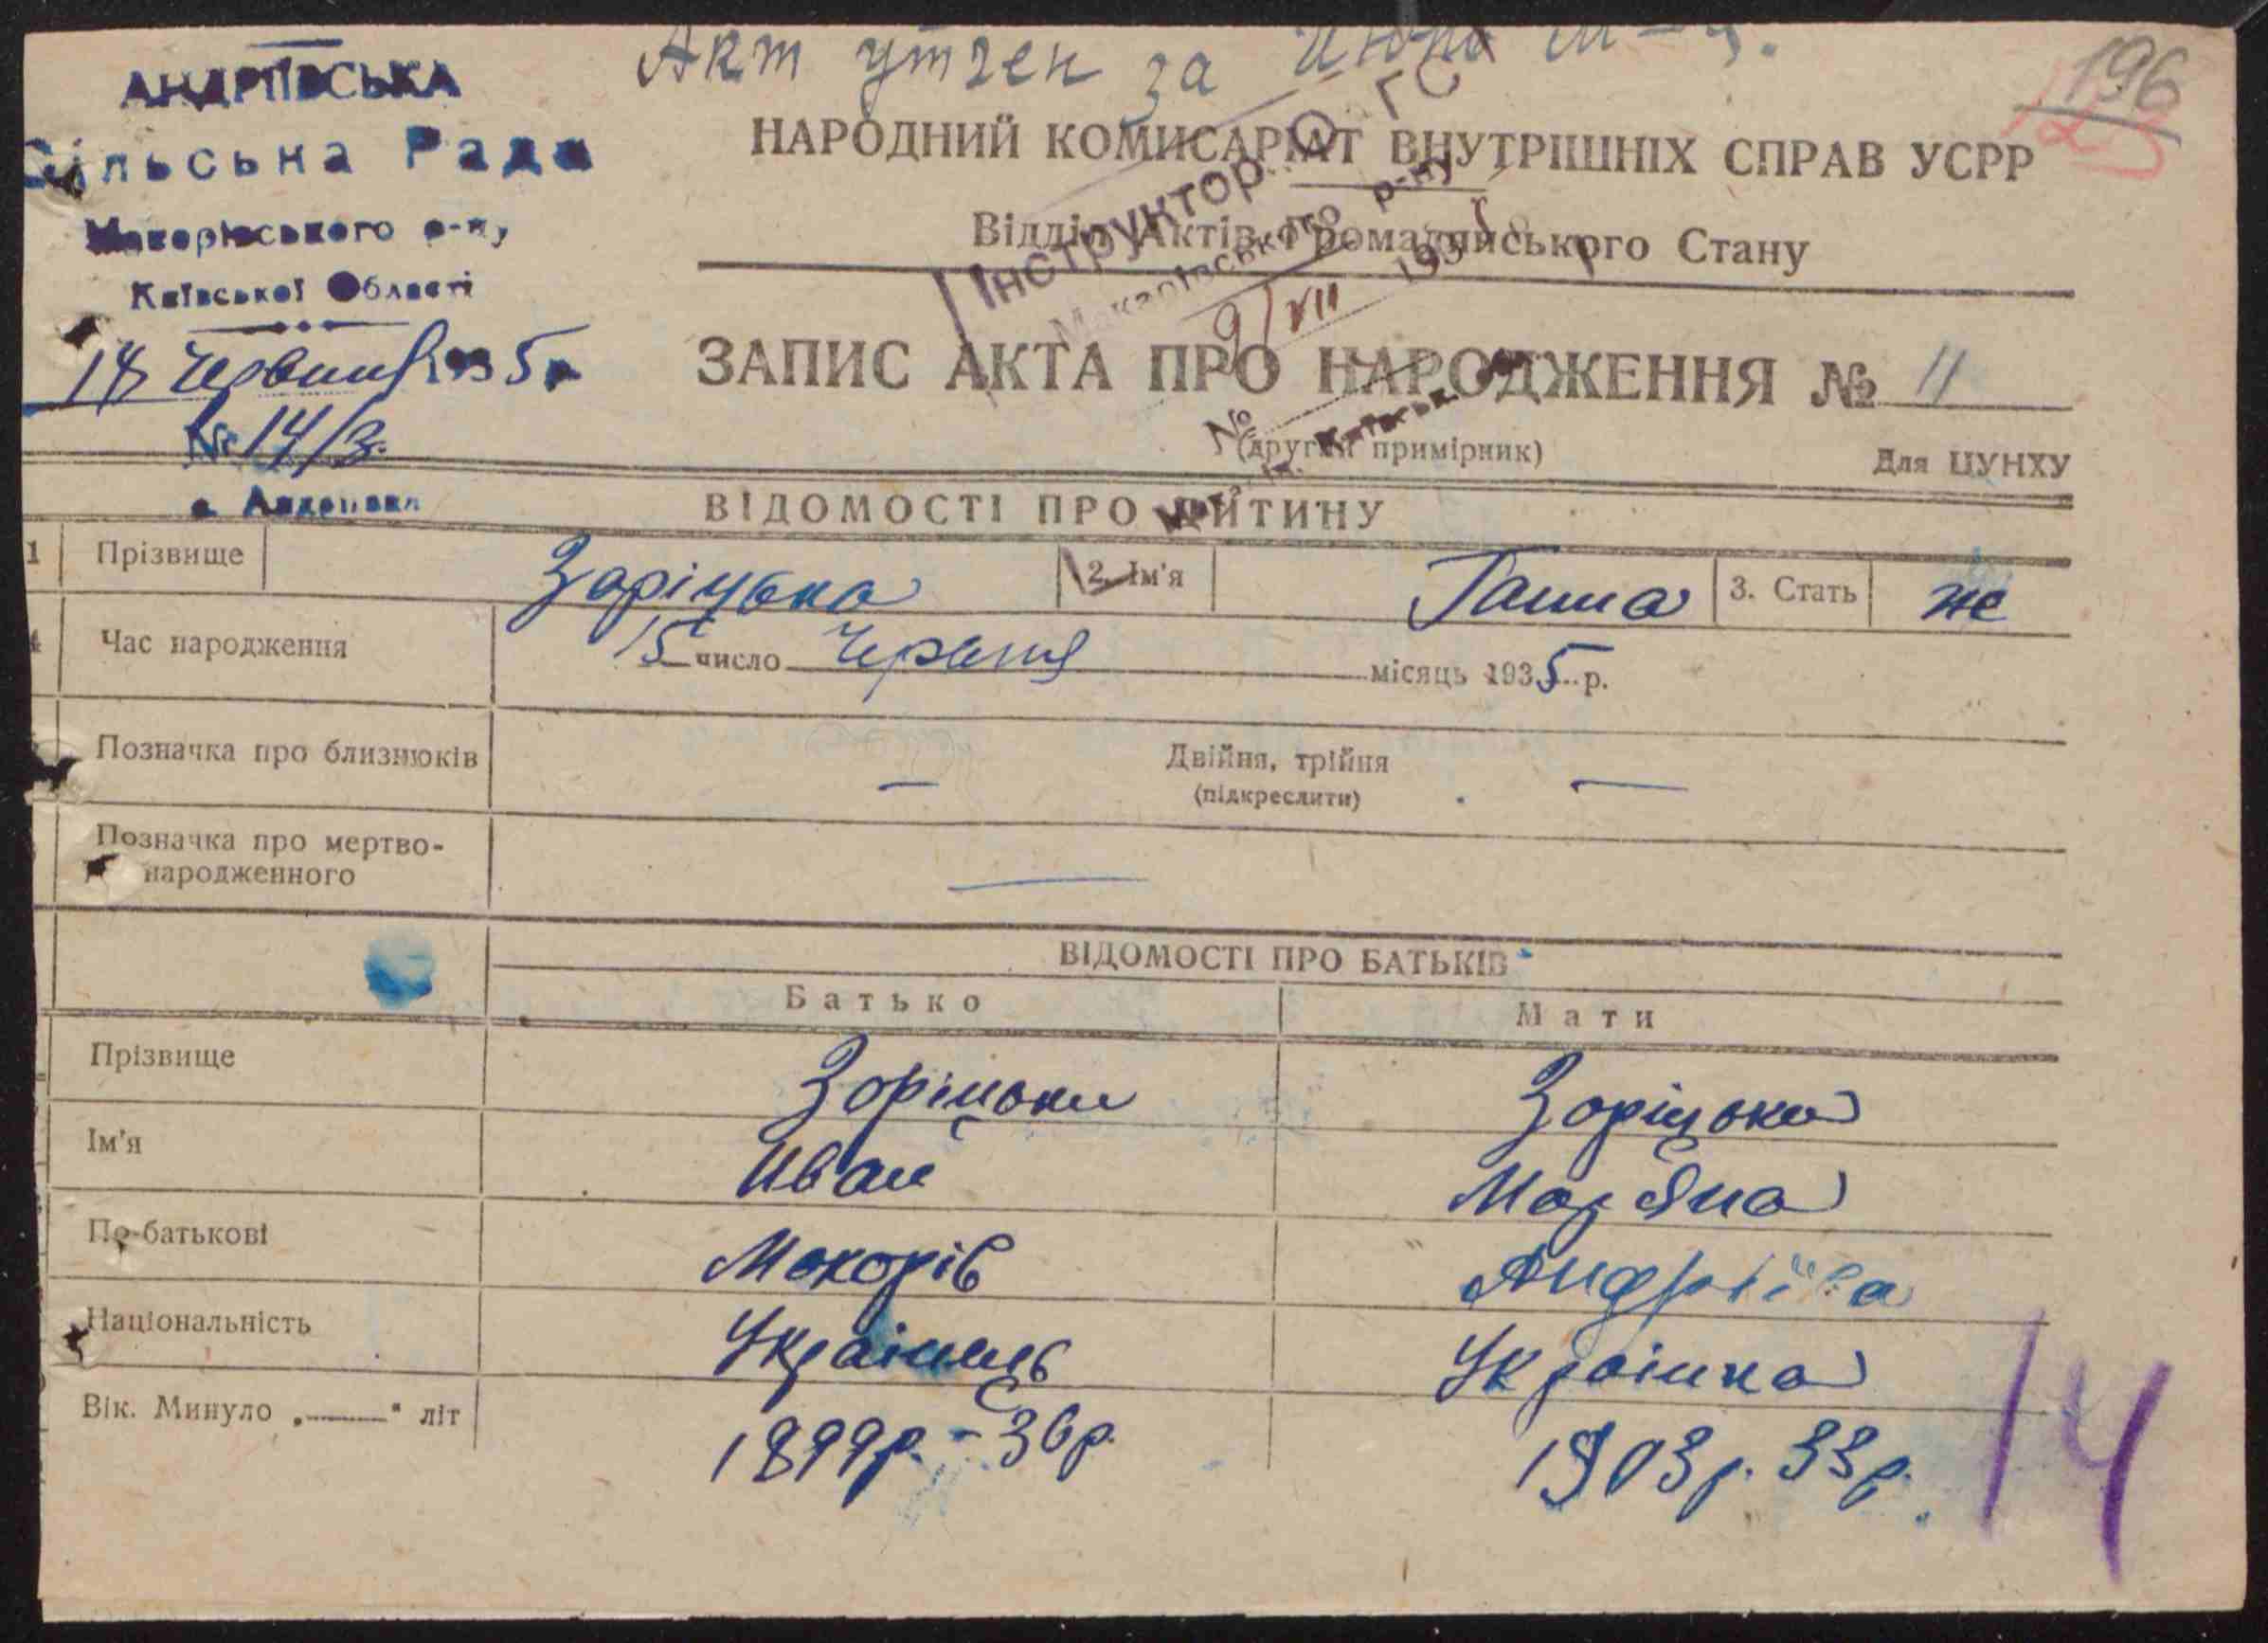 Акт утген за Июнь м-ц.
196
АНДРІЇВСЬКА
Сільська Рада
Макарівського р-ну
Київської Області
18 Червня 1935 р
№ 14/3.
с. Андріївка
НАРОДНИЙ КОМИСАРІАТ ВНУТРІШНІХ СПРАВ УСРР
Відділ Актів Громадянського Стану
Інструктор
Макарівського р-ну
9/VII 193
№
ЗАПИС АКТА ПРО НАРОДЖЕННЯ № 11
(другий примірник)
Для ЦУНХУ
ВІДОМОСТІ ПРО ДИТИНУ
1 Прізвище Заріцька 2. Ім'я Ганна 3. Стать же
4 Час народження 15 число Червня місяць 1935 р.
Позначка про близнюків — Двійня, трійня —
(підкреслити)
Позначка про мертво-
народженного —
ВІДОМОСТІ ПРО БАТЬКІВ
Батько Мати
Прізвище Заріцьки Заріцька
Ім'я Иван Мар'яна
По-батькові Макарів Андріїва
Національність Українець Українка
Вік. Минуло „——" літ 1899р. - 36р. 1903р. 33р.
14